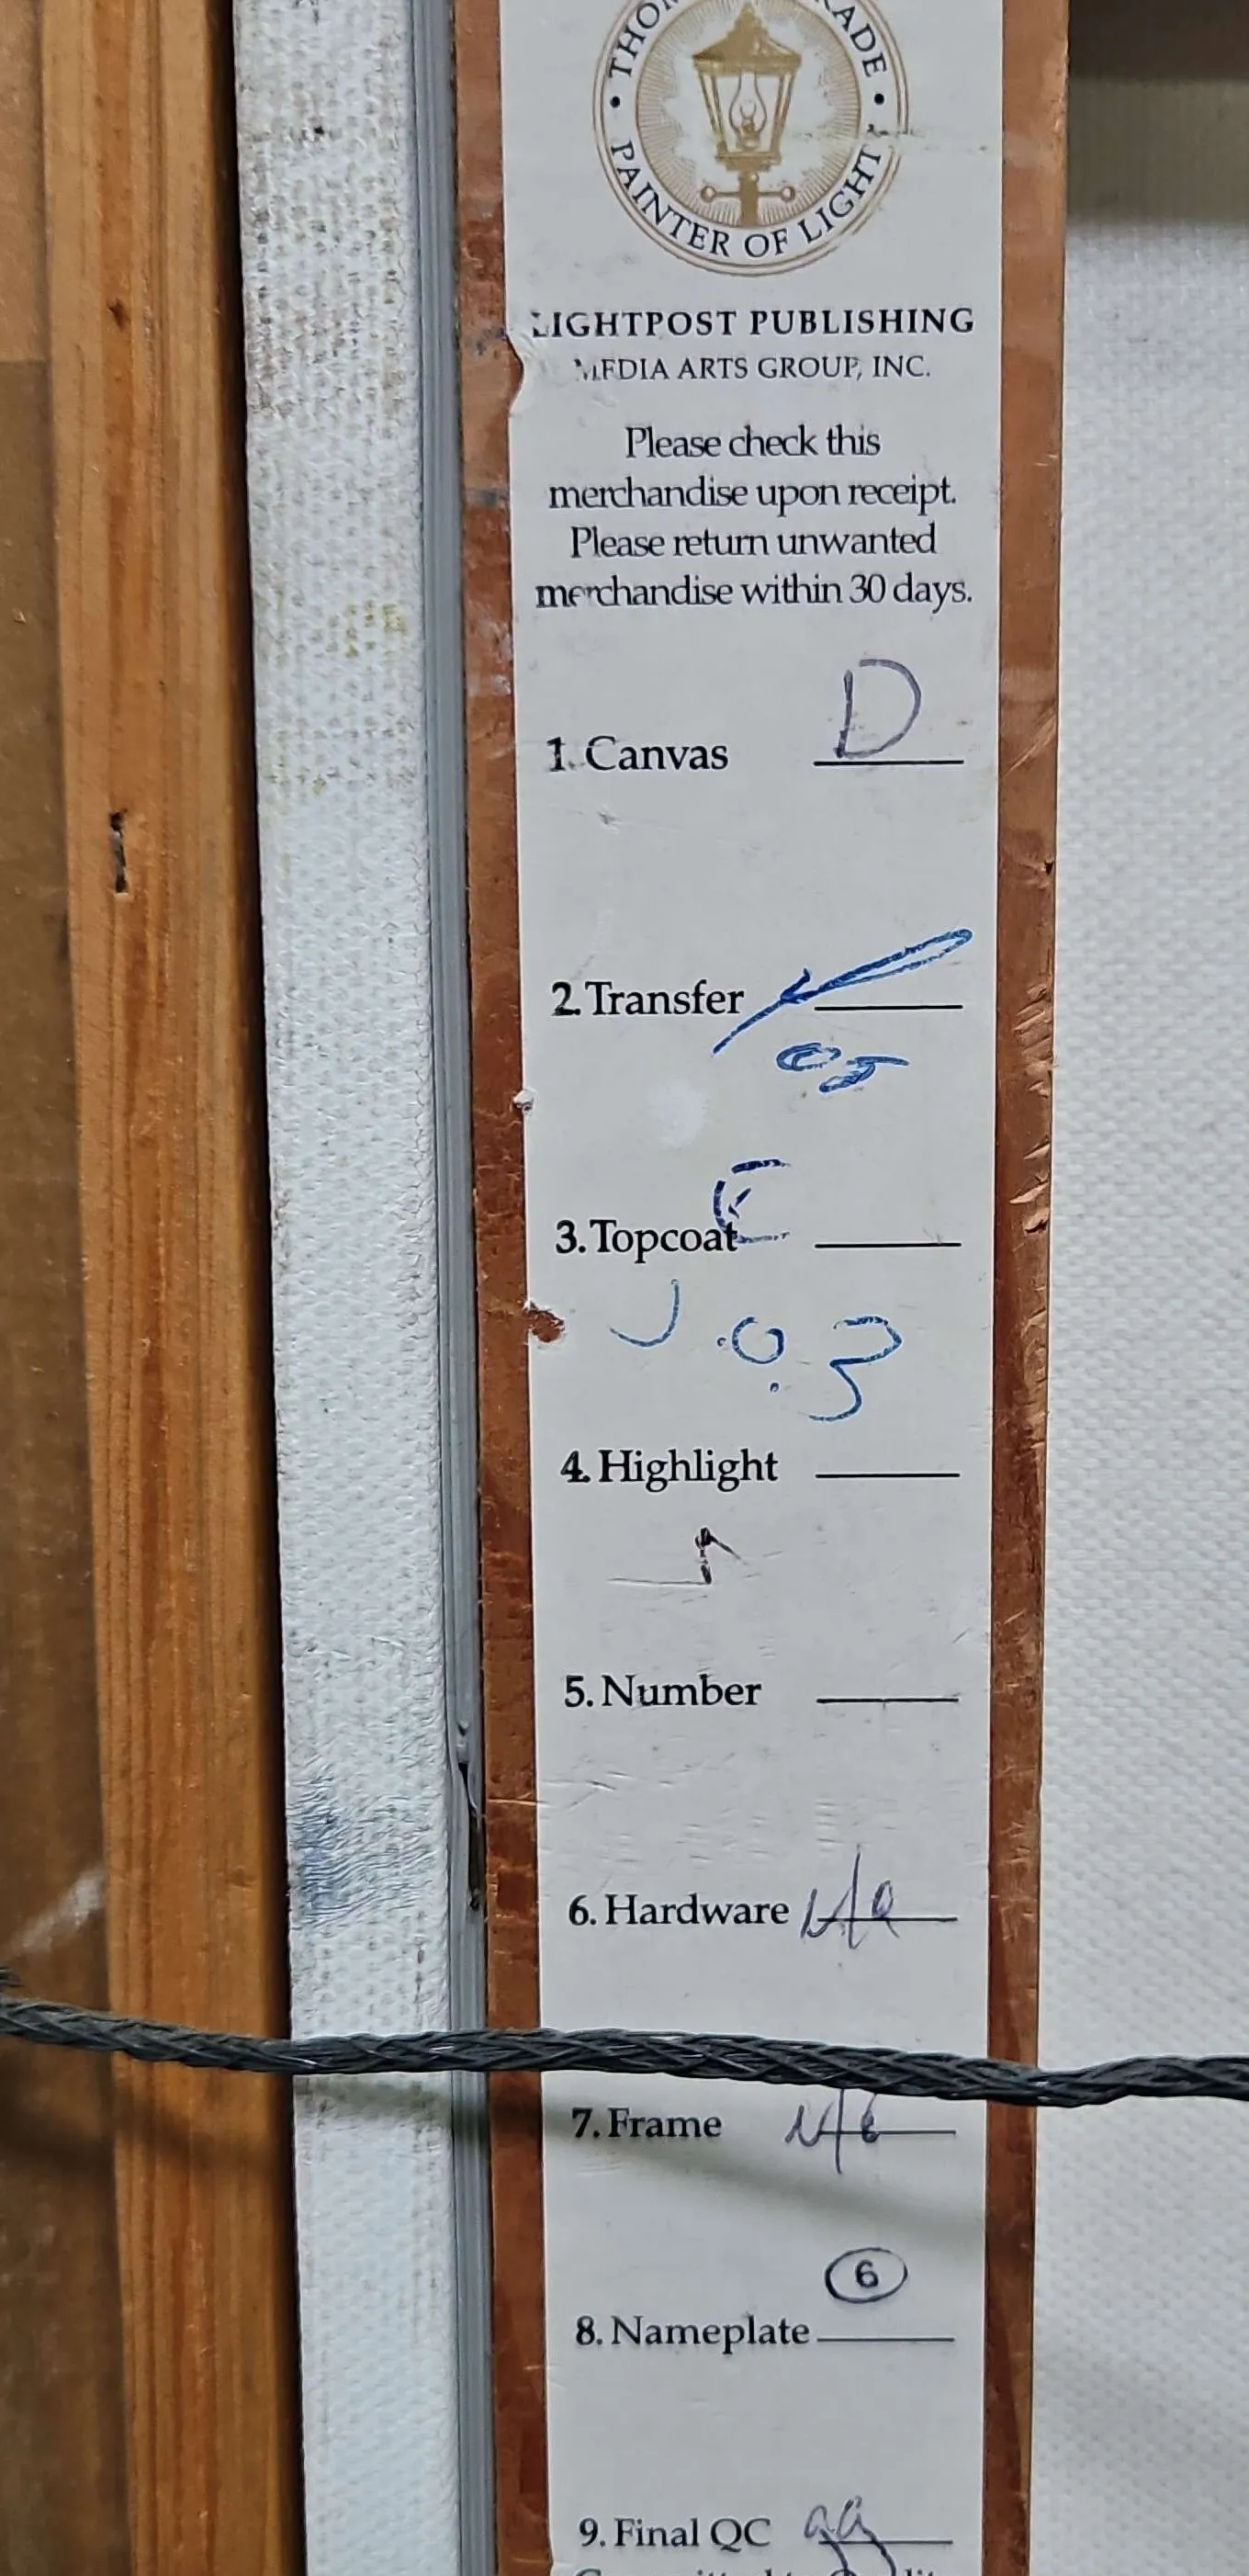 PAINTER OF LIGHT
LIGHTPOST PUBLISHING
MEDIA ARTS GROUP, INC.
Please check this
merchandise upon receipt.
Please return unwanted
merchandise within 30 days.
D
1. Canvas
2. Transfer
3. Topcoat
4. Highlight
5. Number
6. Hardware
7. Frame
6
8. Nameplate
9. Final QC